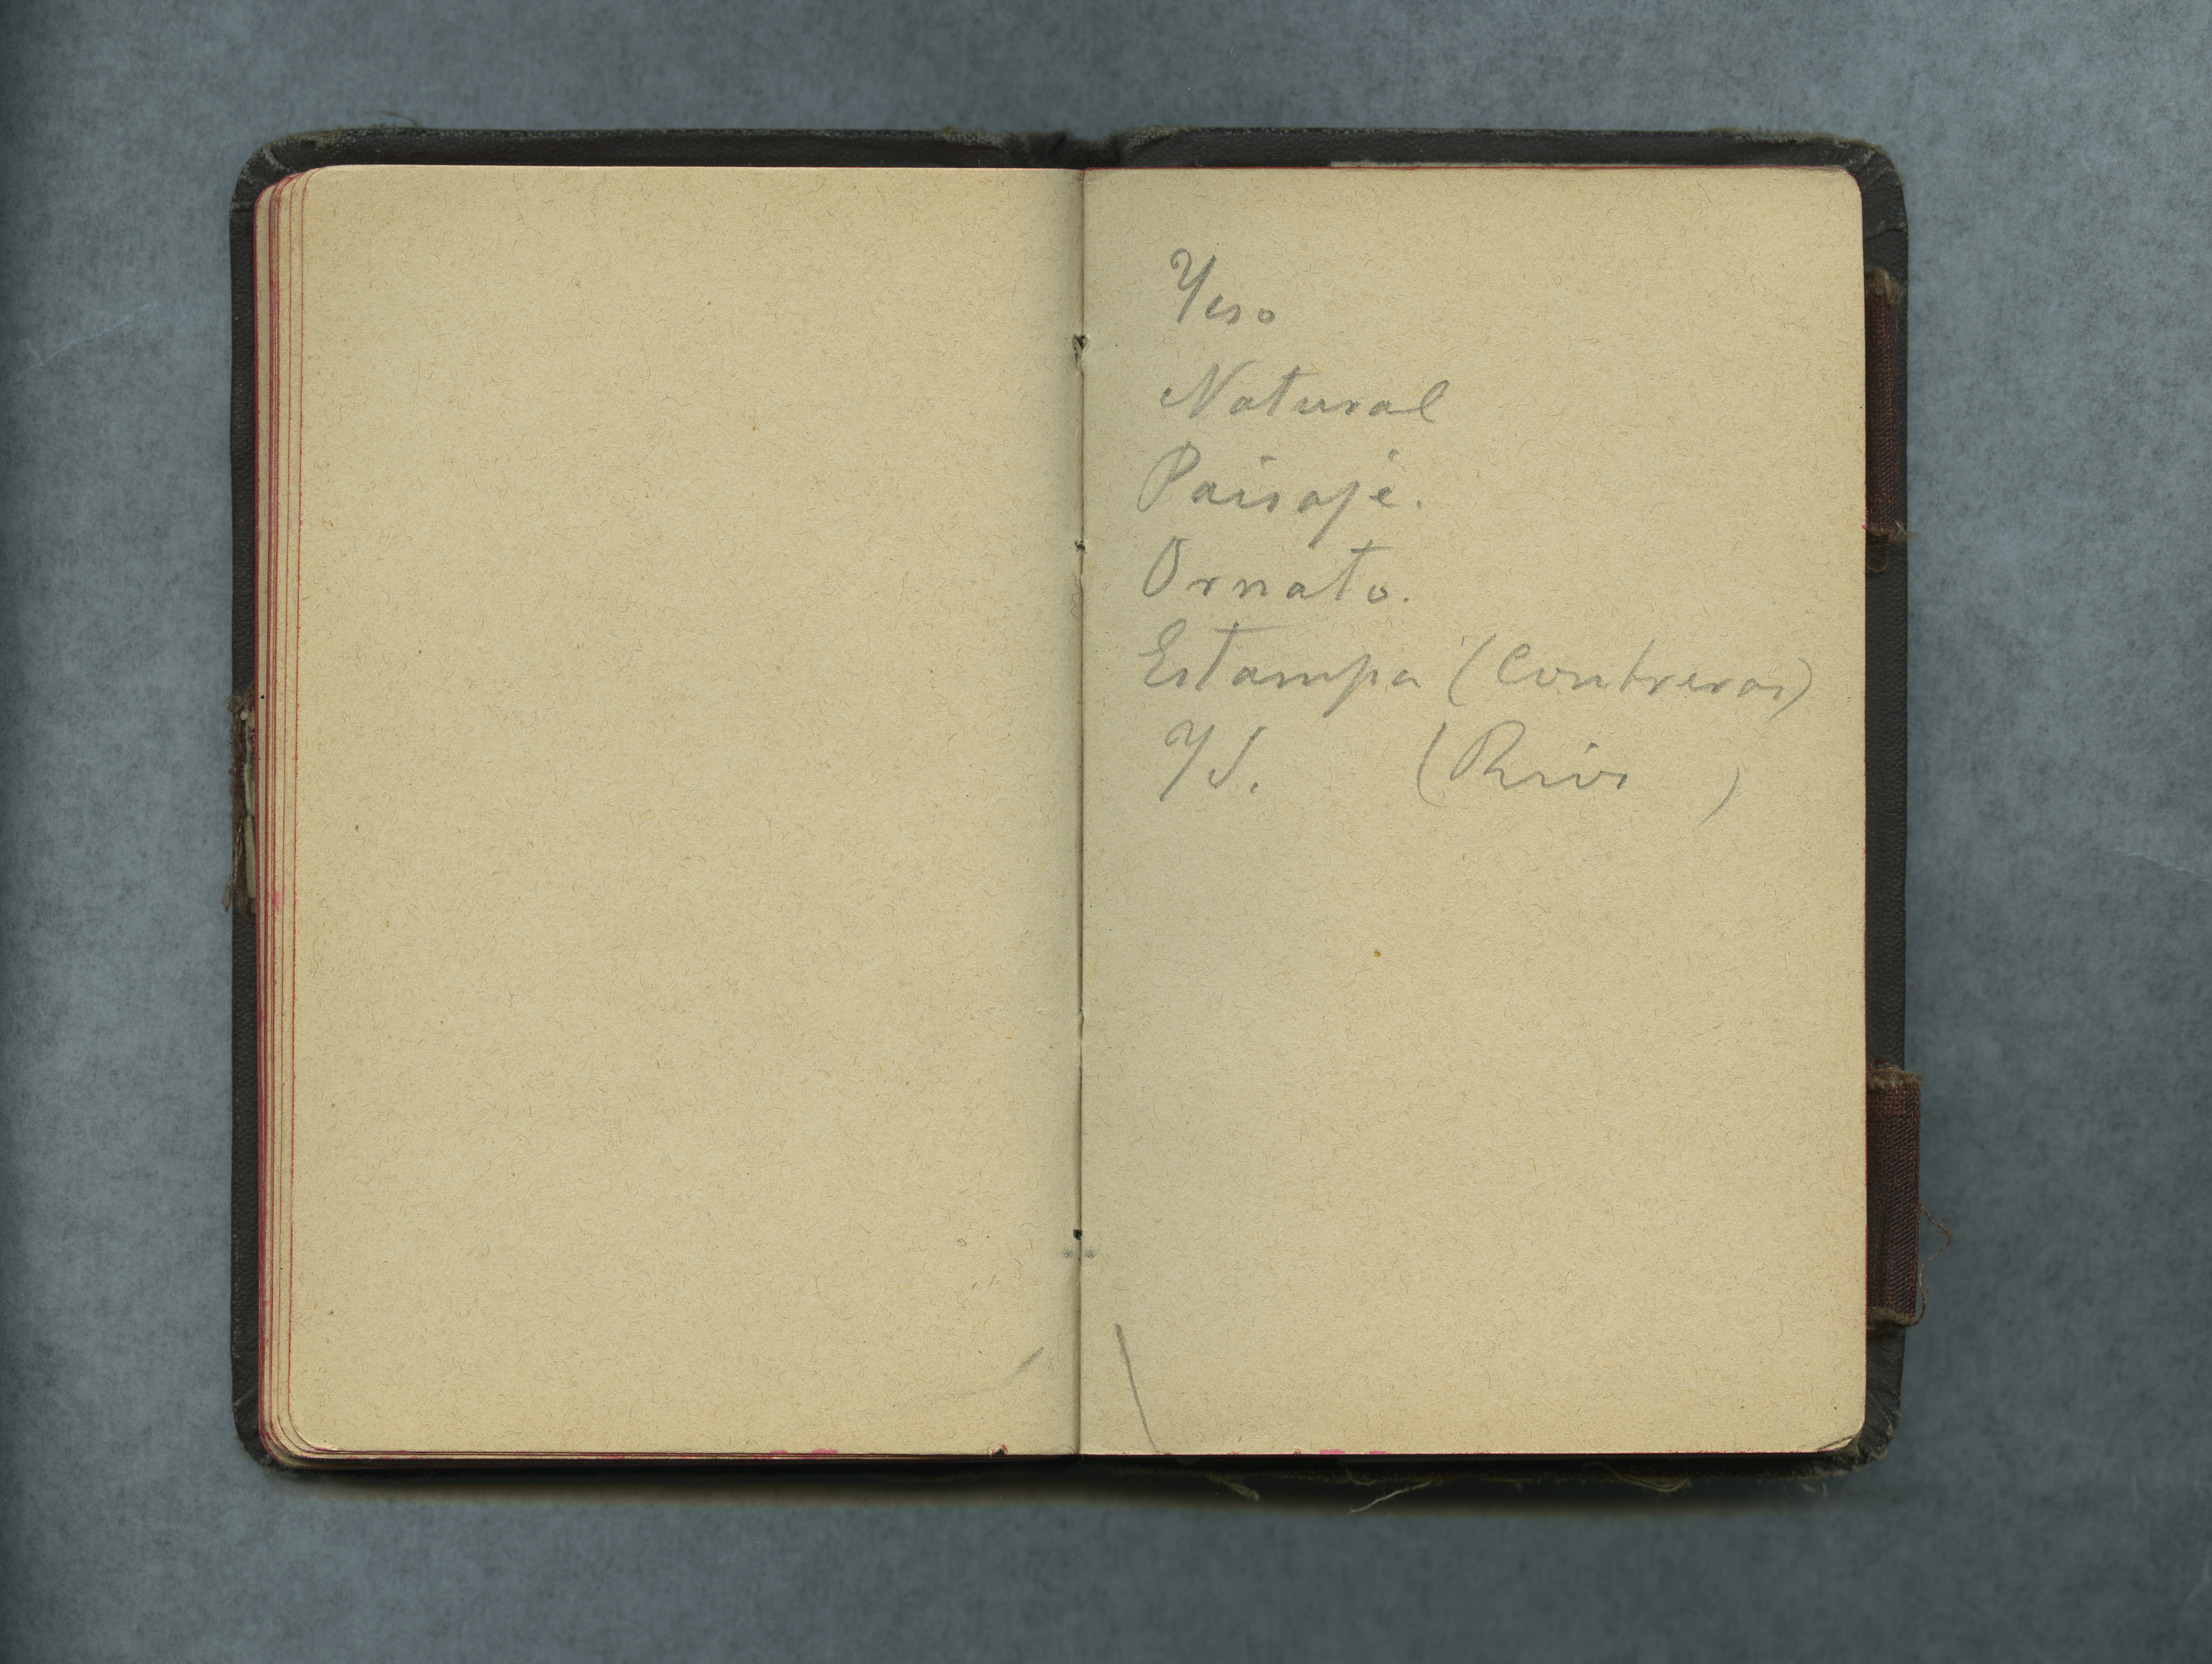 Yeso
Natural
Paisaje.
Ornato.
Estampa (Contreras)
Yd. (       )